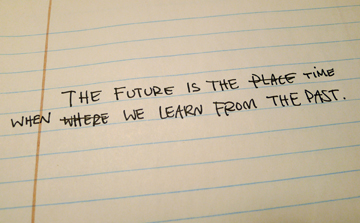 THE FUTURE IS THE PLACE TIME
WHEN WHERE WE LEARN FROM THE PAST.